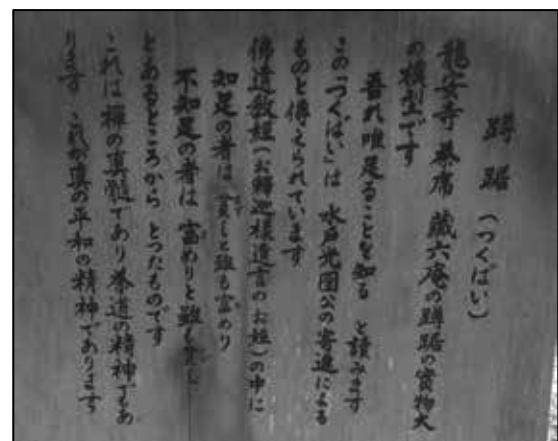 蹲踞（つくばい）
龍安寺茶席 蔵六庵の蹲踞の實物大
の模型です
吾れ唯足ることを知る と讀みます
この「つくばい」は 水戸光圀公の寄進による
ものと傳えられています
佛遺教經（お釋迦様遺言のお經）の中に
知足の者は 貧しと雖も富めり
不知足の者は 富めりと雖も貧し
とあるところから とつたものです
これは禅の真髄であり茶道の精神であ
ります これが真の平和の精神であります